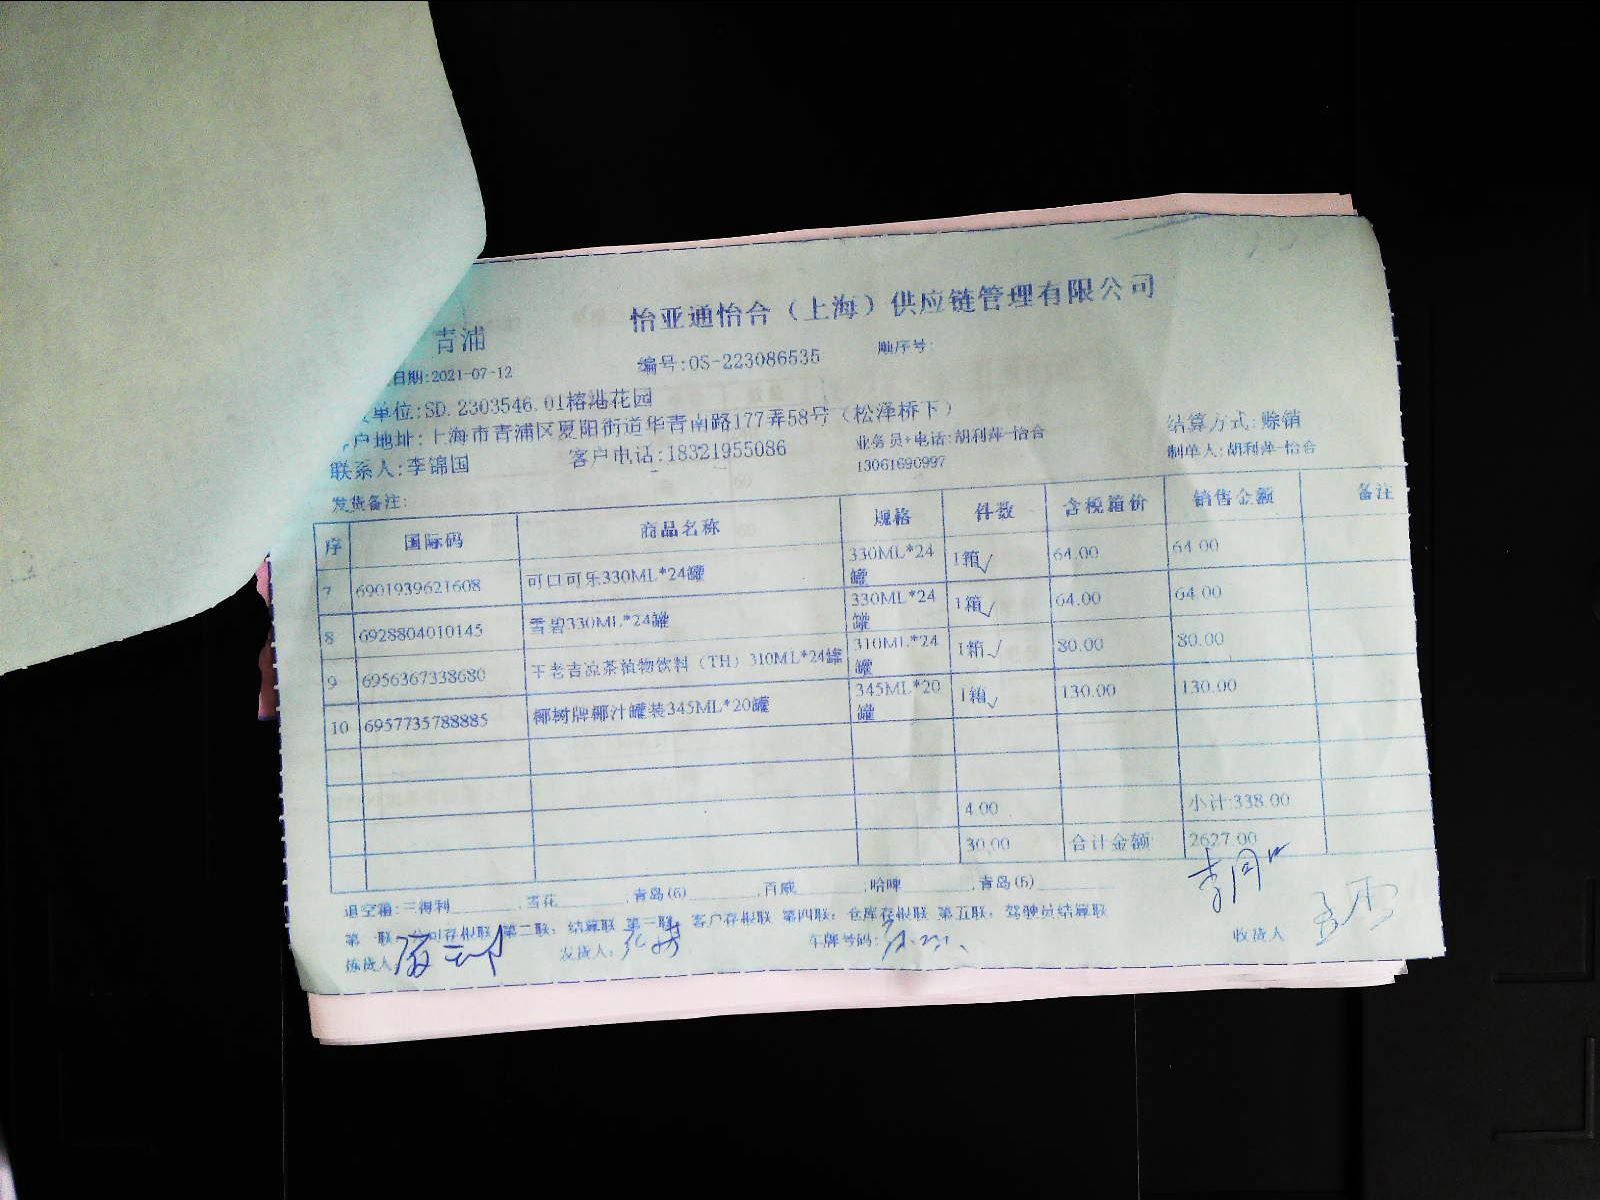 怡亚通怡合（上海）供应链管理有限公司
青浦
日期:2021-07-12 编号:OS-223086535 顺序号:
单位:SD.2303546.01椿港花园
户地址:上海市青浦区夏阳街道华青南路177弄58号（松泽桥下） 结算方式:赊销
联系人:李锦国 客户电话:18321955086 业务员+电话:胡利萍-怡合 制单人:胡利萍-怡合
13061690997
发货备注:
序 国际码 商品名称 规格 件数 含税箱价 销售金额 备注
7 6901939621608 可口可乐330ML*24罐 330ML*24罐 1箱 64.00 64.00
8 6928804010145 雪碧330ML*24罐 330ML*24罐 1箱 64.00 64.00
9 6956367338680 王老吉凉茶植物饮料（TH）310ML*24罐 310ML*24罐 1箱 80.00 80.00
10 6957735788885 椰树牌椰汁罐装345ML*20罐 345ML*20罐 1箱 130.00 130.00
4.00 小计:338.00
30.00 合计金额 2627.00
退空箱:三得利 ;雪花 ;青岛(6) ;百威 ;哈啤 ;青岛(5)
第一联: 公司存根联 第二联: 结算联 第三联: 客户存根联 第四联: 仓库存根联 第五联: 驾驶员结算联
拣货人: 发货人: 车牌号码: 收货人